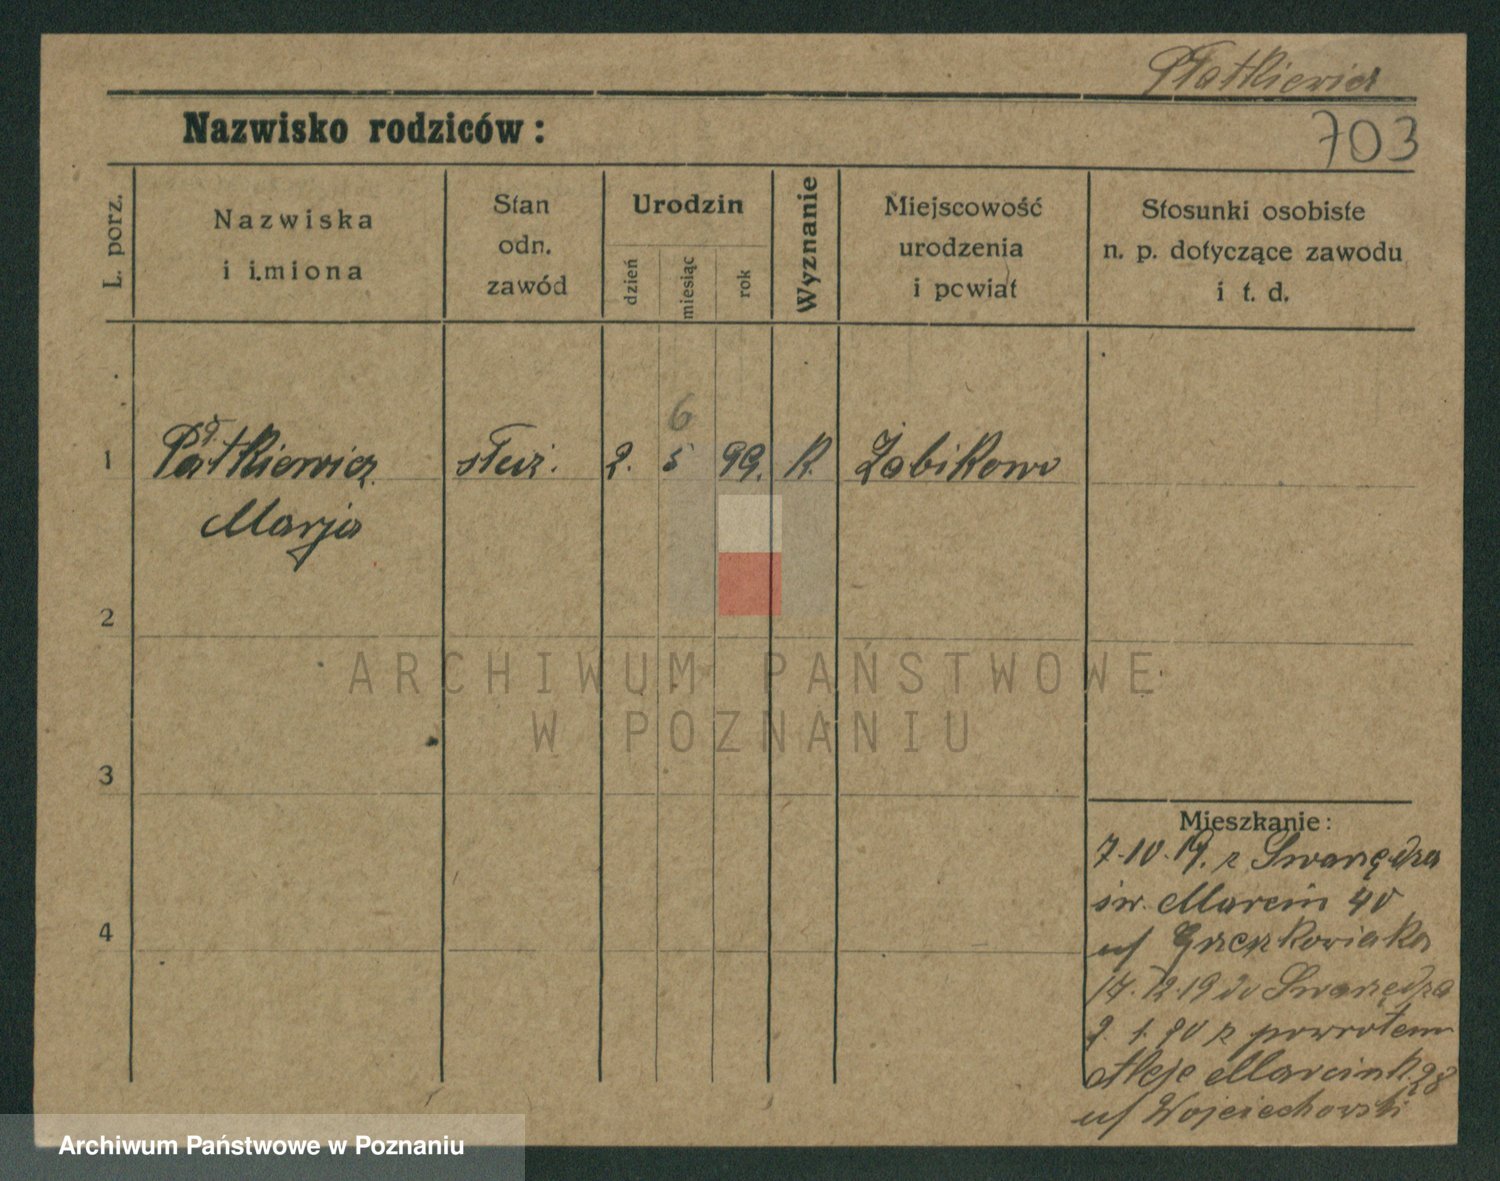 Płatkiewicz
Nazwisko rodziców:
703
L. porz.
Nazwiska
i imiona
Stan
odn.
zawód
Urodzin
dzień
miesiąc
rok
Wyznanie
Miejscowość
urodzenia
i powiat
Stosunki osobiste
n. p. dotyczące zawodu
i t. d.
6
1 Płatkiewicz służ. 2. 5 99. K. Żabikowo
Marja
2
ARCHIWUM PAŃSTWOWE
W POZNANIU
3
Mieszkanie:
7.10.19. z Swarzędza
św. Marcin 40
u/ Grzeszkowiaka
17.12.19 do Swarzędza
2. 1. 20 z powrotem
Aleje Marcink. 28
u/ Wojciechowski
4
Archiwum Państwowe w Poznaniu